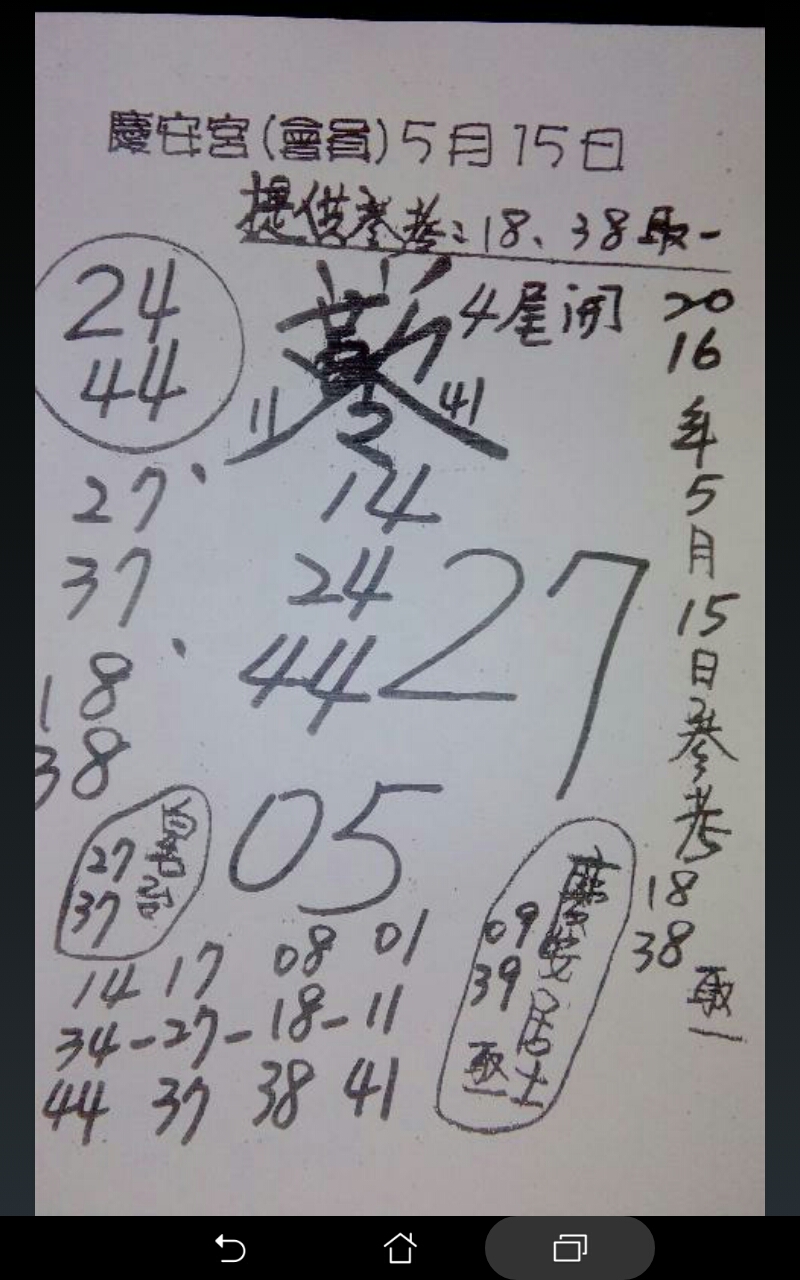 慶安宮(會員)5月15日
提供參考:18、38取一
24
44
4尾開
11
2
41
27
37
14
24
44
27
18
38
05
27
37
14 17 08 01
34-27-18-11
44 37 38 41
慶安居士
09
39
取一
2016年5月15日參考
18
38
取一